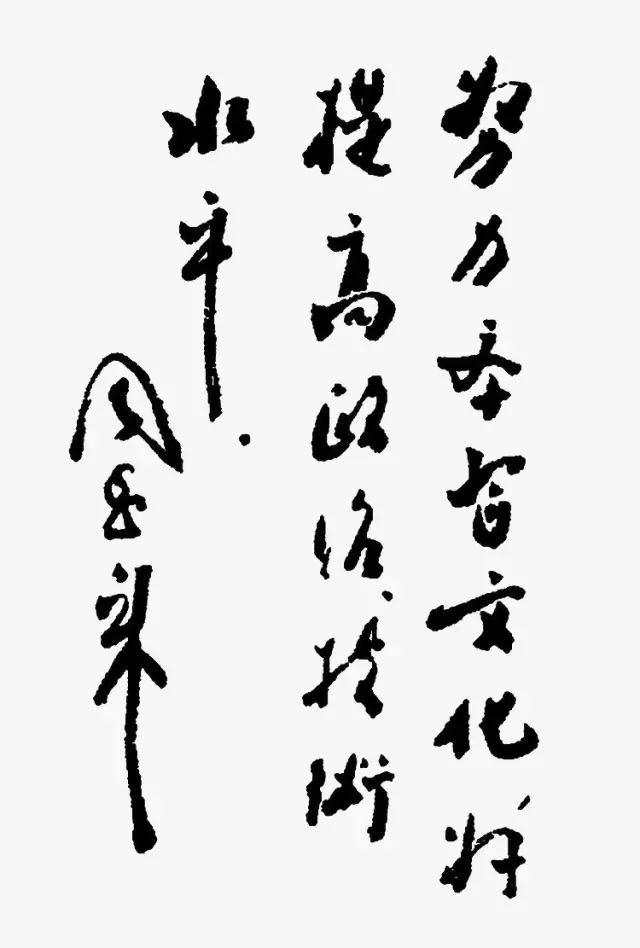 努力学習文化
提高政治、技術
水平.
周恩来